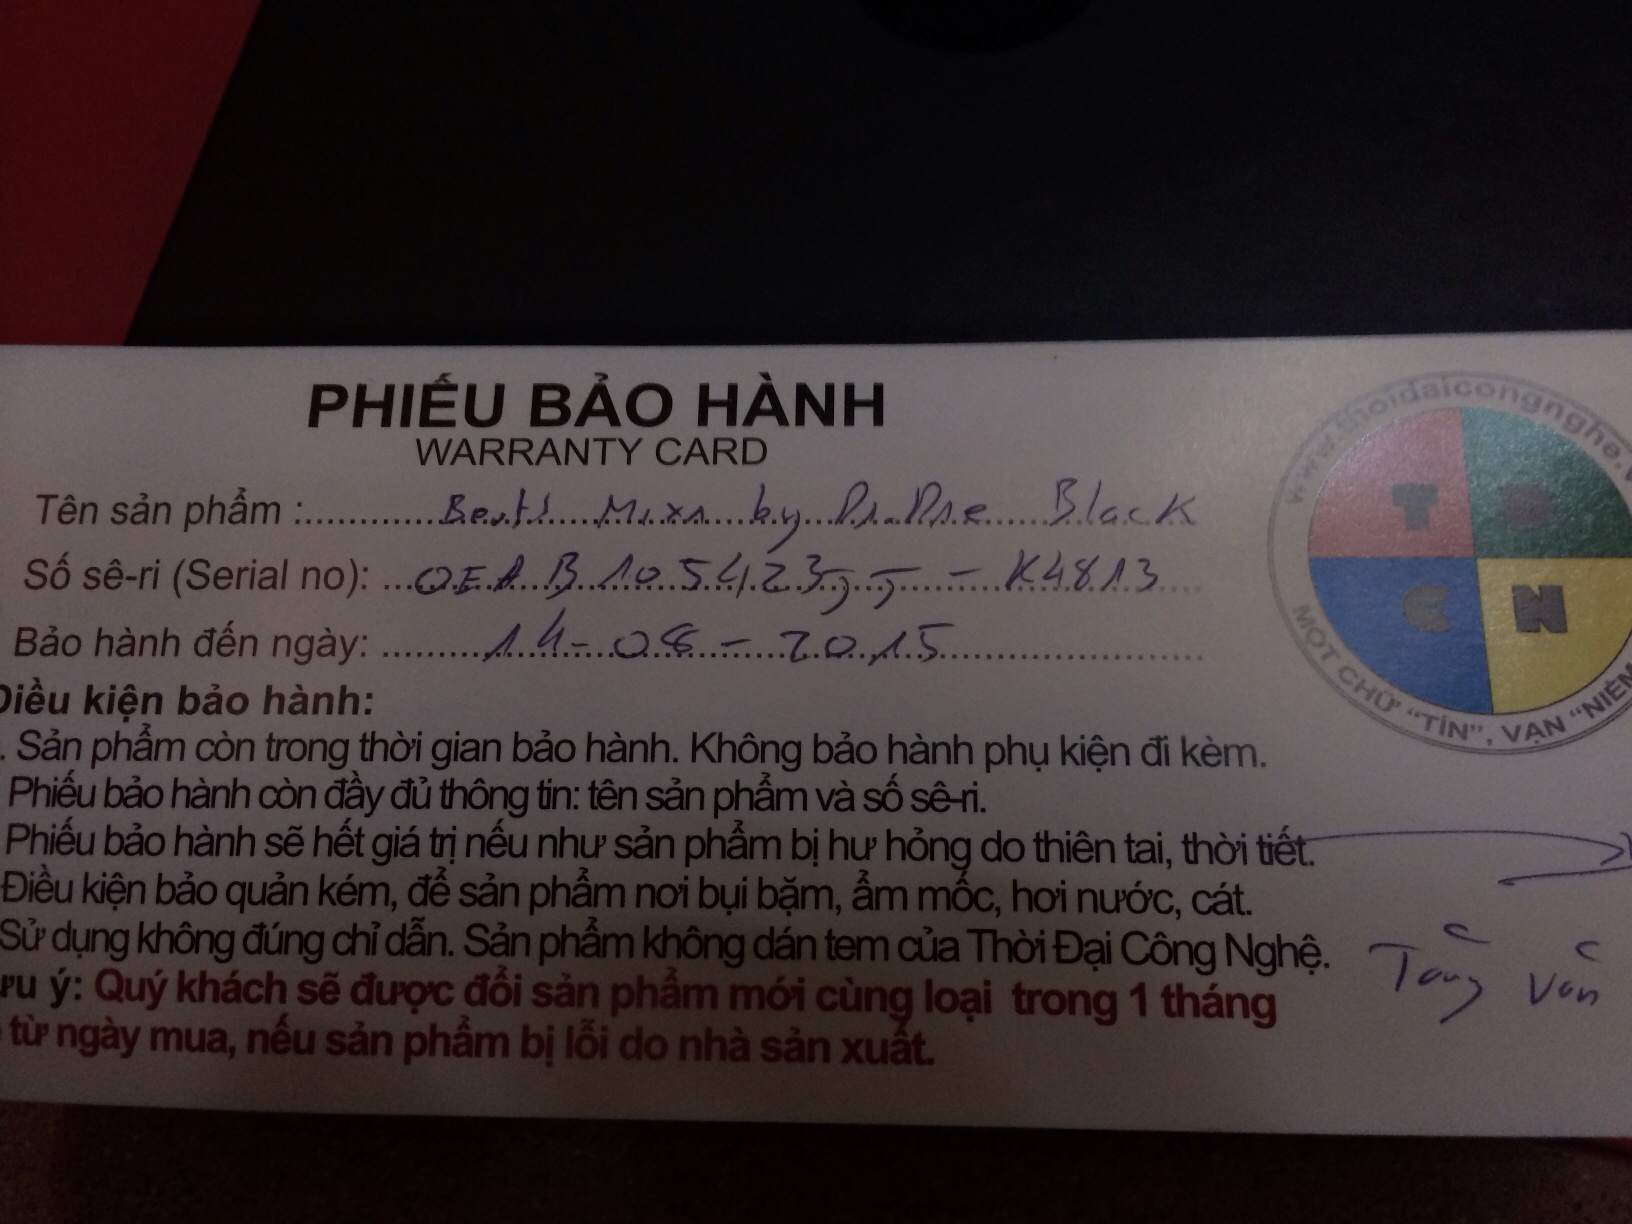 PHIẾU BẢO HÀNH
WARRANTY CARD
Tên sản phẩm : Beats Mixr by Dr. Dre Black
Số sê-ri (Serial no): - K4813
Bảo hành đến ngày: 14-08-2015
Điều kiện bảo hành:
. Sản phẩm còn trong thời gian bảo hành. Không bảo hành phụ kiện đi kèm.
Phiếu bảo hành còn đầy đủ thông tin: tên sản phẩm và số sê-ri.
Phiếu bảo hành sẽ hết giá trị nếu như sản phẩm bị hư hỏng do thiên tai, thời tiết.
Điều kiện bảo quản kém, để sản phẩm nơi bụi bặm, ẩm mốc, hơi nước, cát.
Sử dụng không đúng chỉ dẫn. Sản phẩm không dán tem của Thời Đại Công Nghệ.
ưu ý: Quý khách sẽ được đổi sản phẩm mới cùng loại trong 1 tháng
từ ngày mua, nếu sản phẩm bị lỗi do nhà sản xuất.
www.thoidaicongnghe.v
T D
C N
MỘT CHỮ "TÍN", VẠN "NIỀM